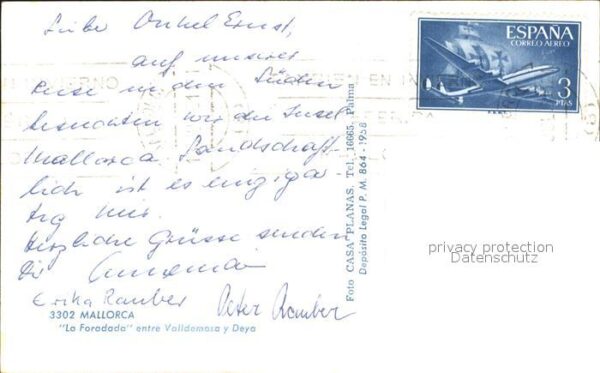 Liebe Onkel Ernst,
auf unserer
Reise in den Süden
besuchten wir die Insel
Mallorca. Landschaft-
lich ist es einziga-
rtig hier.
Herzliche Grüsse senden
Dir
Erika Rauber Peter Rauber
3302 MALLORCA
"La Foradada" entre Valldemosa y Deya
Foto CASA PLANAS. Tel. 16665. Palma
Depósito Legal P. M. 864 - 1958
ESPAÑA
CORREO AEREO
3
PTAS
privacy protection
Datenschutz